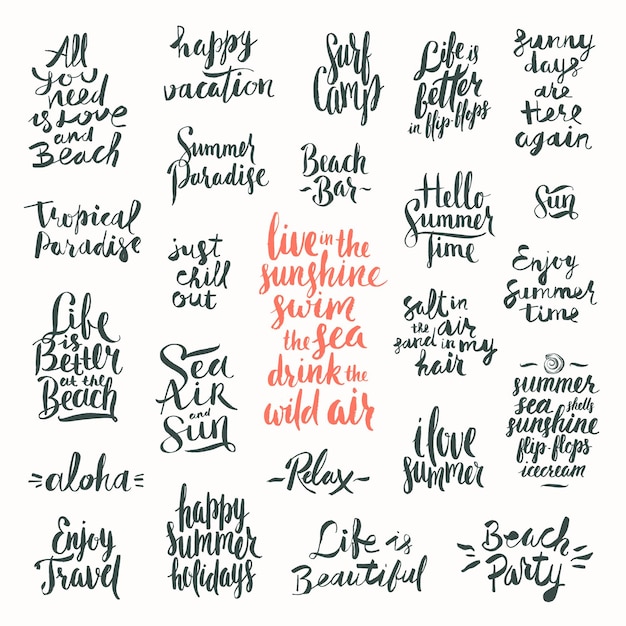 All
You
need
is Love
and
Beach
happy
vacation
Surf
Camp
Life is
better
in flip-flops
sunny
days
are
Here
again
Summer
Paradise
Beach
-Bar-
Hello
Summer
Time
Sun
Tropical
Paradise
just
chill
out
live in the
sunshine
swim
the sea
drink the
wild air
Enjoy
Summer
time
Life
is
Better
at the
Beach
Sea
Air
and
Sun
salt in
the air
sand in my
hair
summer
sea shells
sunshine
flip-flops
icecream
aloha
-Relax-
i love
summer
Enjoy
Travel
happy
summer
holidays
Life is
Beautiful
Beach
Party